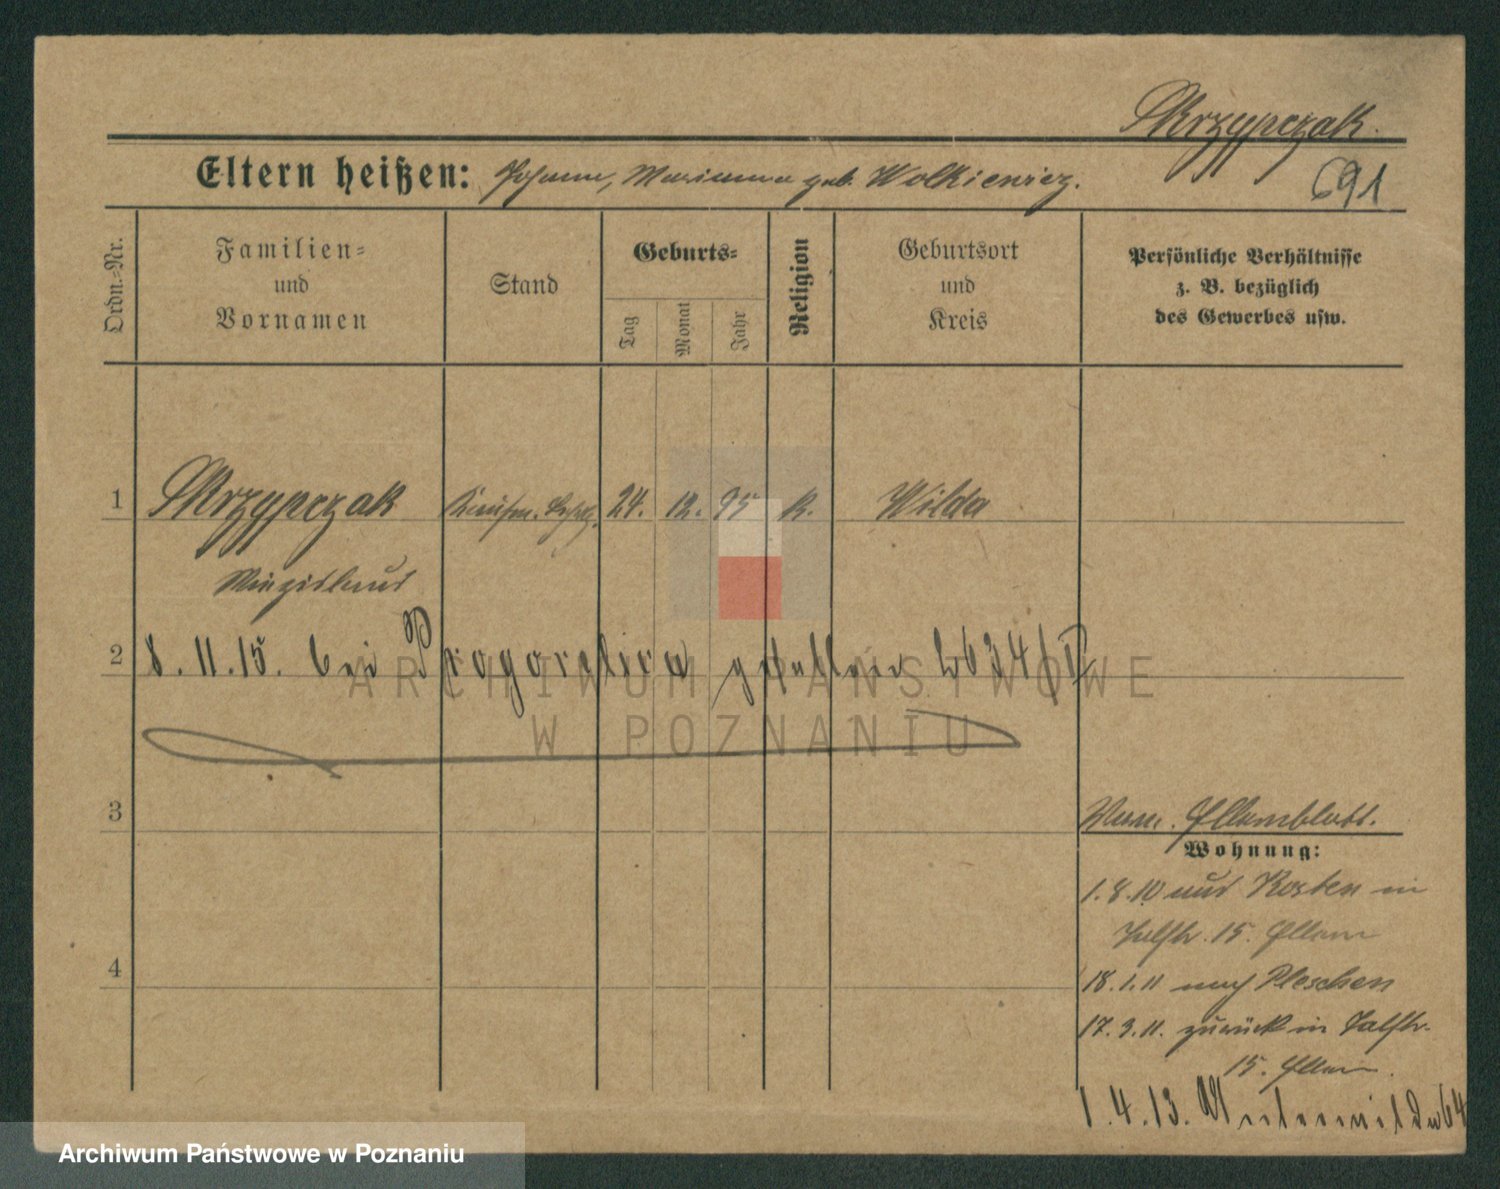 Skrzypczak.
Eltern heißen: Johann, Marianna geb. Wolkiewicz.
691
Ordn.-Nr.
Familien-
und
Vornamen
Stand
Geburts-
Tag
Monat
Jahr
Religion
Geburtsort
und
Kreis
Persönliche Verhältnisse
z. B. bezüglich
des Gewerbes usw.
1 Skrzypczak 24. 12. 95 k. Wilda
2 8.11.15. bei gefallen
ARCHIWUM PAŃSTWOWE
W POZNANIU
3
4
Wohnung:
1.8.10 aus Kosten in
15. Eltern
18.1.11 nach Pleschen
17.3.11. zurück in
15. Eltern.
1.4.13.
Archiwum Państwowe w Poznaniu